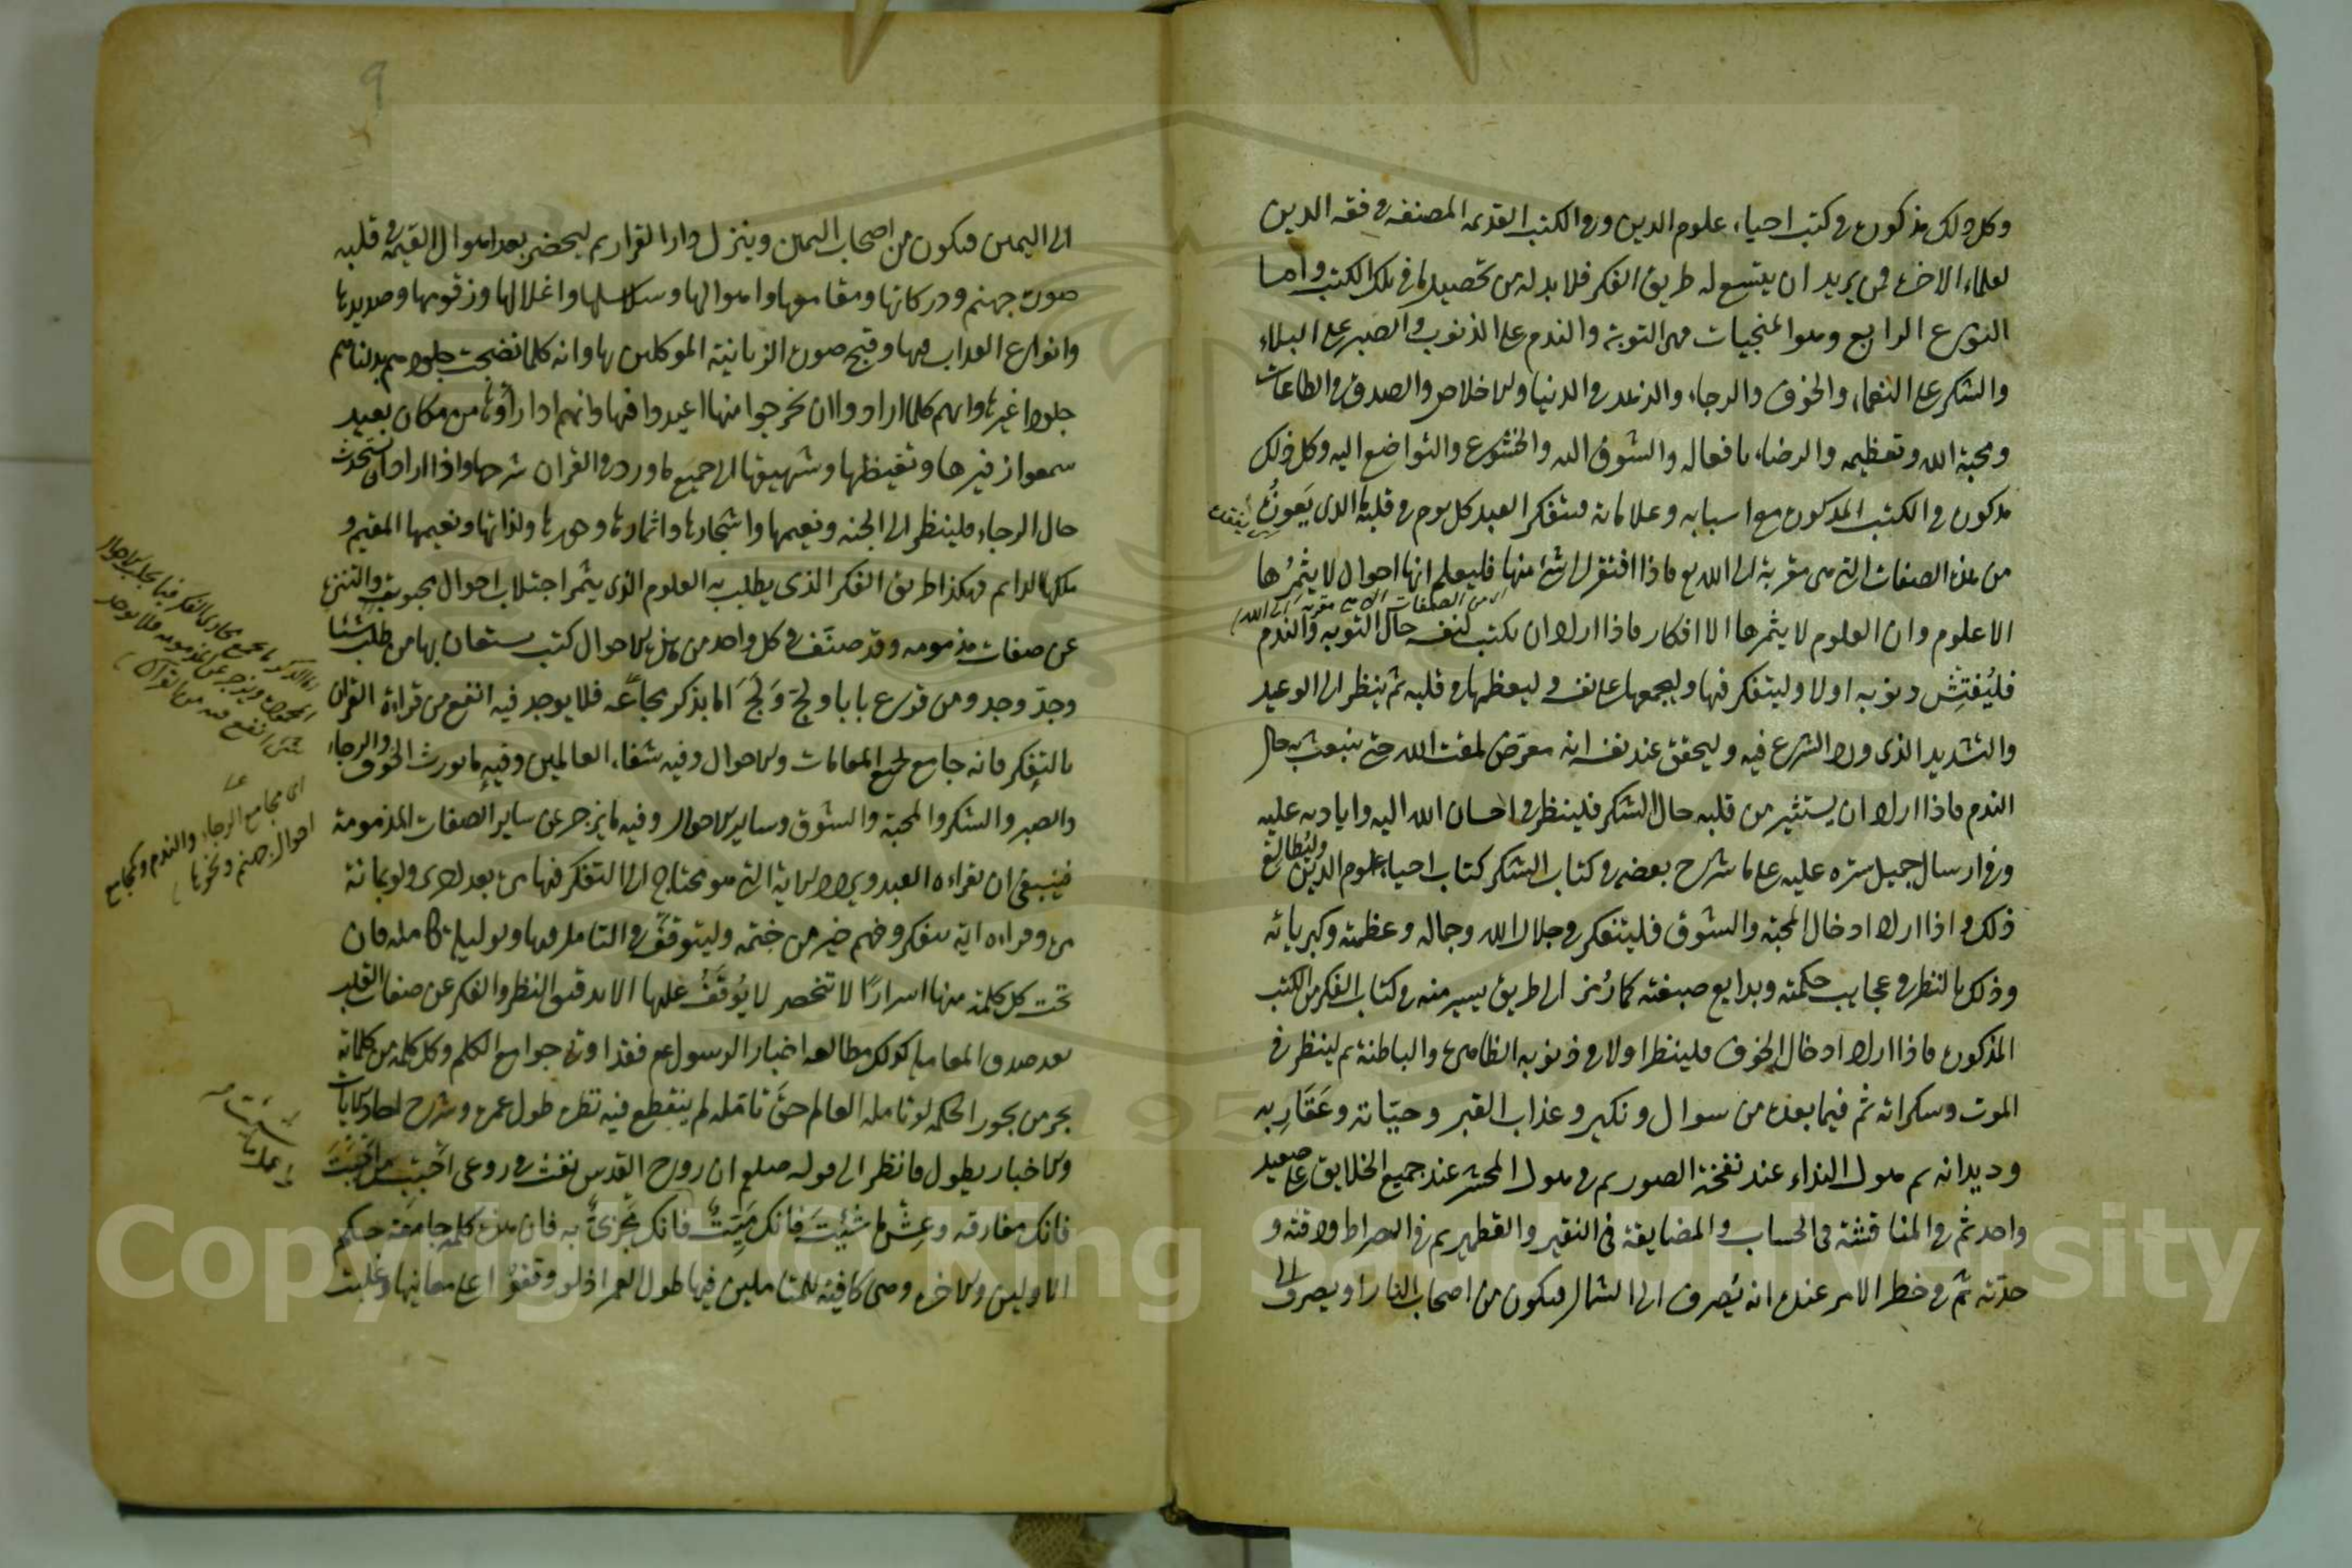 وكل ذلك مذكورة في كتب احياء علوم الدين وفي الكتب القديمه المصنفه في فقه الدين
لعلماء الاخرة فمن يريد ان يتسع له طريق الفكر فلا بد له من تحصيل ما في تلك الكتب واما
النوع الرابع وهو المنجيات فهي التوبة والندم على الذنوب والصبر على البلاء
والشكر على النعماء والخوف والرجاء والزهد في الدنيا والاخلاص والصدق في الطاعات
ومحبة الله وتعظيمه والرضاء بافعاله والشوق اليه والخشوع والتواضع اليه وكل ذلك
مذكورة في الكتب المذكورة مع اسبابه وعلاماته فيتفكر العبد كل يوم في قلبه ما الذي يعوزه
من هذه الصفات التي هي مقربة الى الله تع فاذا افتقر الى شئ منها فليعلم انها احوال لا يثمرها
الا علوم وان العلوم لا يثمرها الا افكار فاذا اراد ان يكتب لنفسه حال التوبه والندم
فليفتش ذنوبه اولا وليتفكر فيها وليجمعها على نفسه وليعظمها في قلبه ثم ينظر الى الوعيد
والتشديد الذي ورد الشرع فيه وليحقق عند نفسه انه معرض لمقت الله حتى ينبعث به حال
الندم فاذا اراد ان يستثير من قلبه حال الشكر فلينظر في احسان الله اليه واياديه عليه
وفي ارسال جميل ستره عليه على ما شرح بعضه في كتاب الشكر كتاب احياء علوم الدين وليطالع
ذلك واذا اراد ادخال المحبة والشوق فليتفكر في جلال الله وجماله وعظمته وكبريائه
وذلك بالنظر في عجايب حكمته وبدايع صنعته كما رمز الى طريق يسير منه في كتاب الفكر من الكتب
المذكورة فاذا اراد ادخال الخوف فلينظر اولا في ذنوبه الظاهرة والباطنة ثم لينظر في
الموت وسكراته ثم فيما بعده من سوال ونكير وعذاب القبر وحياته وعقاربه
وديدانه ثم هول النداء عند نفخة الصور ثم في هول المحشر عند جميع الخلايق على صعيد
واحد ثم في المناقشة في الحساب والمضايقة في النقير والقطمير ثم في الصراط ودقته و
حدته ثم في خطر الامر عنده انه يصرف الى الشمال فيكون من اصحاب النار او يصرف الى
9
الى اليمين فيكون من اصحاب اليمين وينزل دار القرار ثم ليحضر بعد اهوال القيمة في قلبه
صورة جهنم ودركاتها ومقامعها واهوالها وسلاسلها واغلالها وزقومها وصديدها
وانواع العذاب فيها وقبح صورة الزبانية الموكلين بها وانه كلما نضجت جلودهم بدلناهم
جلودا غيرها وانهم كلما ارادوا ان يخرجوا منها اعيدوا فيها وانهم اذا راوها من مكان بعيد
سمعوا زفيرها وتغيظها وشهيقها الى جميع ما ورد في القران شرحها واذا اراد ان يستحدث
حال الرجاء فلينظر الى الجنه ونعيمها واشجارها واثمارها وحورها ولذاتها ونعيمها المقيم و
ملكها الدايم فهكذا طريق الفكر الذي يطلب به العلوم الذي يثمر اجتلاب احوال محبوبة والتنزه
عن صفات مذمومه وقد صنف في كل واحد من هذه الاحوال كتب يستعان بها من طلب شيئا
وجد وجد ومن قرع بابا ولج ولج اما بذكر مجامعه فلا يوجد فيه انفع من قراءة القران
بالتفكر فانه جامع لجميع المعاملات والاحوال وفيه شفاء العالمين وفيه ما يورث الخوف والرجاء
والصبر والشكر والمحبة والشوق وساير الاحوال وفيه ما يزجر عن ساير الصفات المذمومة
فينبغي ان يقراءه العبد ويردد الاية التي هو محتاج الى التفكر فيها مرة بعد اخرى ولو مائة
مرة وقراءة اية بتفكر وفهم خير من ختمه وليتوقف في التامل فيها ولو ليلة كاملة فان
تحت كل كلمة منها اسرارا لا تنحصر لا يوقف عليها الا بدقيق النظر والفكر عن صفات القلب
بعد صدق المعاملة كذلك مطالعه اخبار الرسول عم فقد اوتي جوامع الكلم وكل كلمه من كلماته
بحر من بحور الحكمه لو تامله العالم حق تامله لم ينقطع فيه نظره طول عمره وشرح احاد الايات
والاخبار يطول فانظر الى قوله صلعم ان روح القدس نفث في روعي احبب من احببت
فانك مفارقه وعش ما شئت فانك ميت فانك تجزى به فان هذه كلمه جامعة حكم
الاولين والاخره وهي كافية للمتاملين فيها طول العمر اذ لو وقفوا على معانيها وغلبت
اى مجامع الرجاء والندم وكمجامع
احوال جهنم ونحوها
Copyright © King Saud University
1957